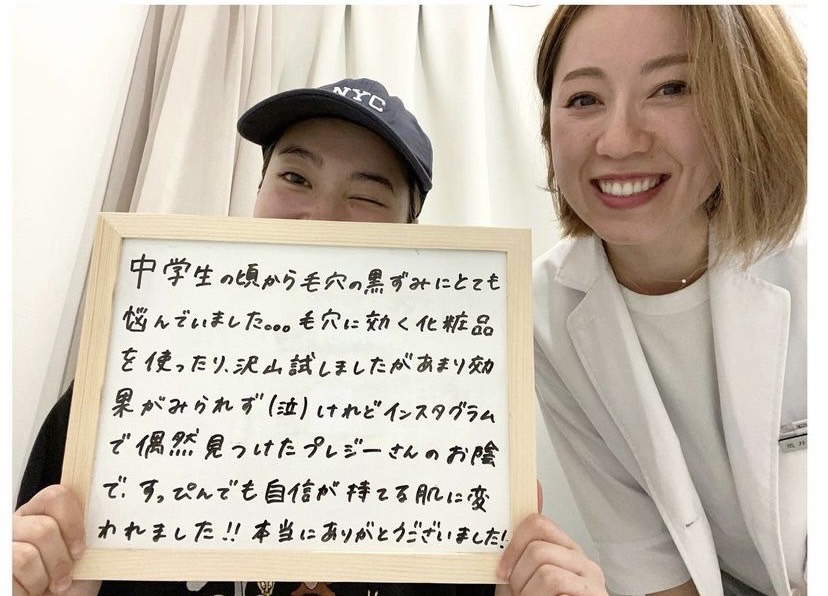 NYC
中学生の頃から毛穴の黒ずみにとても
悩んでいました。。。毛穴に効く化粧品
を使ったり、沢山試しましたがあまり効
果がみられず(泣)けれどインスタグラム
で偶然見つけたプレジーさんのお陰
で、すっぴんでも自信が持てる肌に変
われました!!本当にありがとうございました!